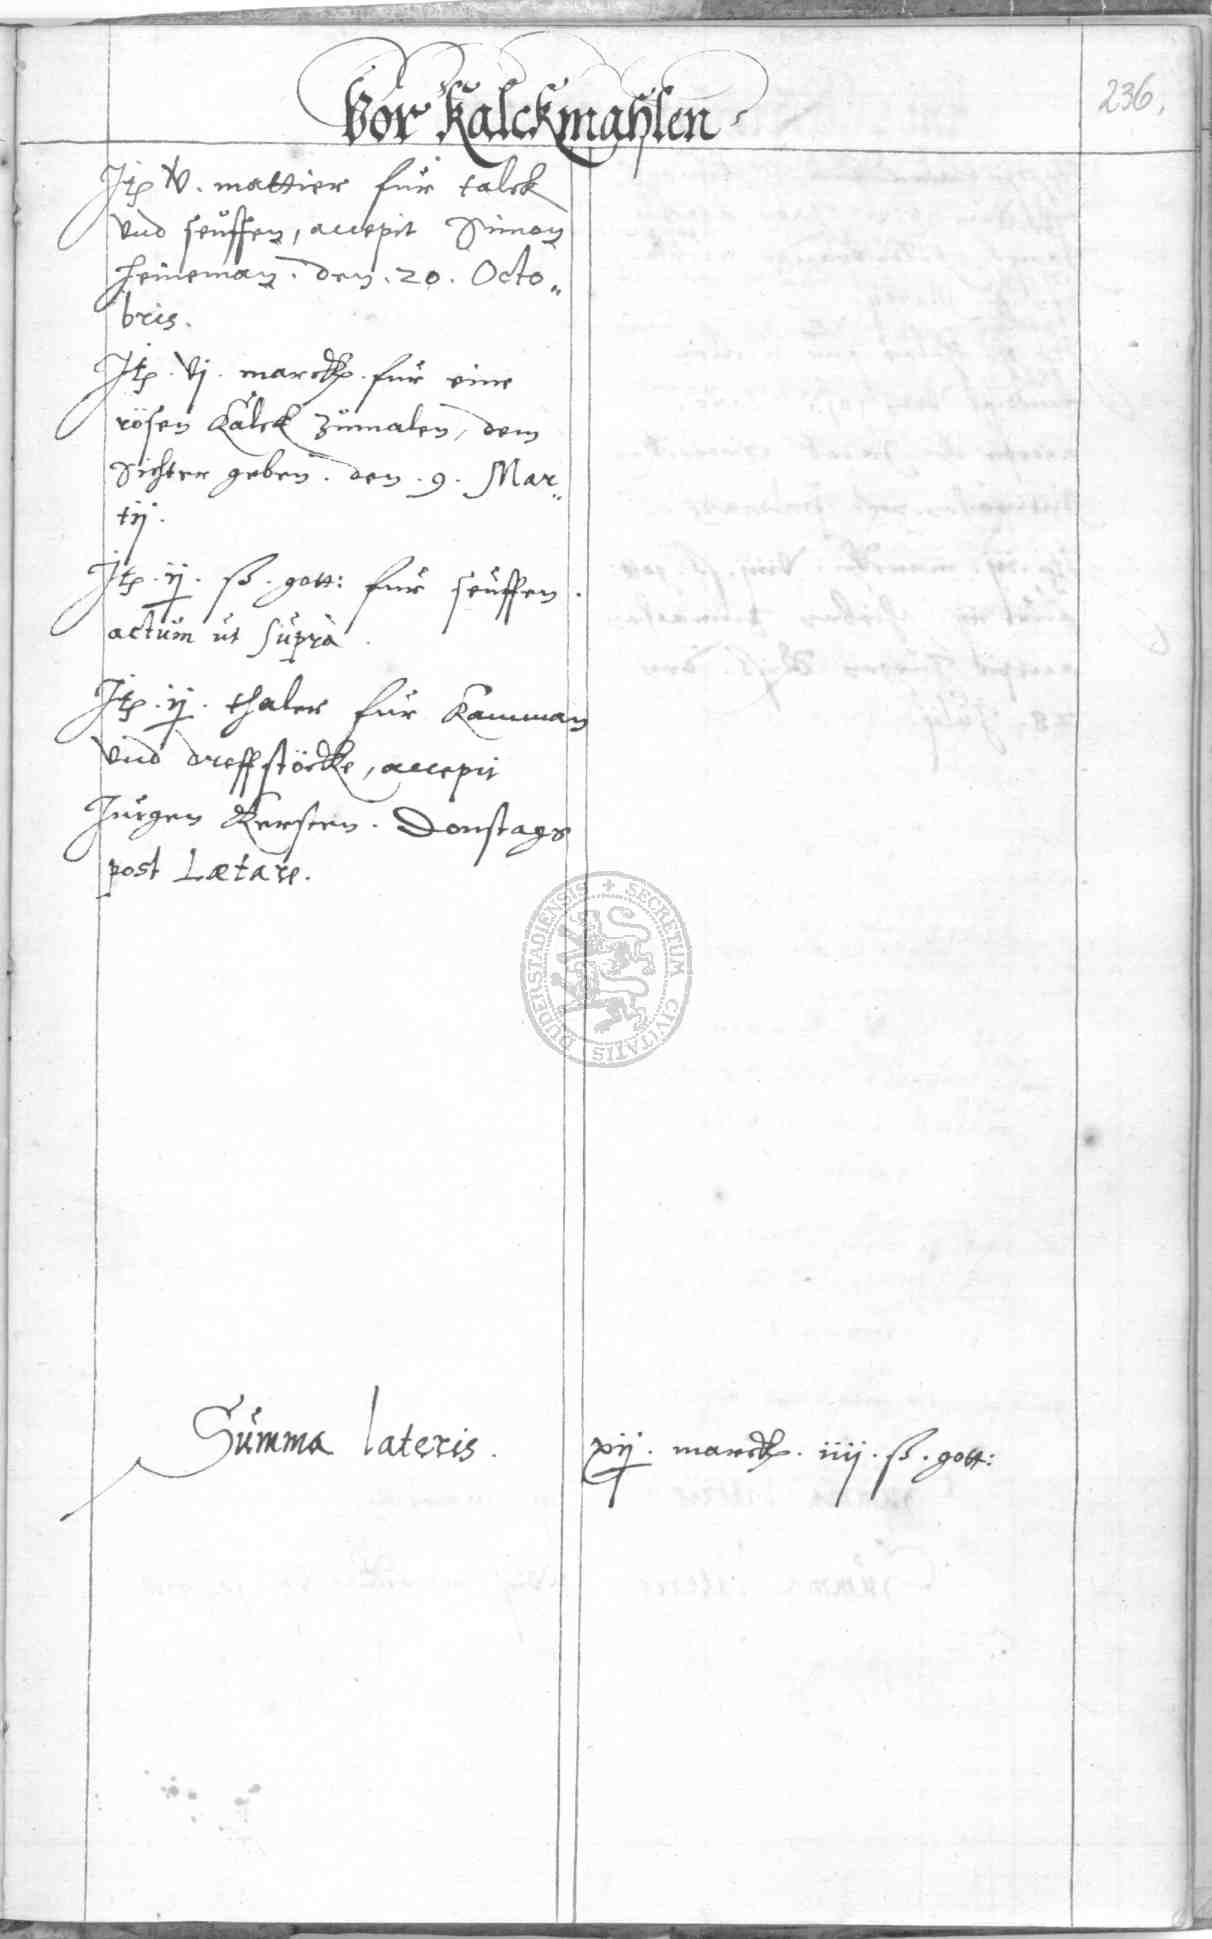 236.
Vor Kalckmahlen
Itp v. mattier für talck
vnd seuffen, accepit Simon
Heineman. den. 20. Octo„
bris.
Itp. vj. marck. für eine
rösen Kalck zumalen, dem
Sichter geben. den. 9. Mar„
tij.
Itp. ij. ß. gott: für seuffen.
actum ut Supra.
Itp. ij. thaler für Camman
vnd dreffstöcke, accepit
Jurgen Kersten. Donstags
post Lætare.
SECRETUM CIVITATIS DUDERSTADIENSIS
Summa lateris. xij. marck. iiij. ß. gott: